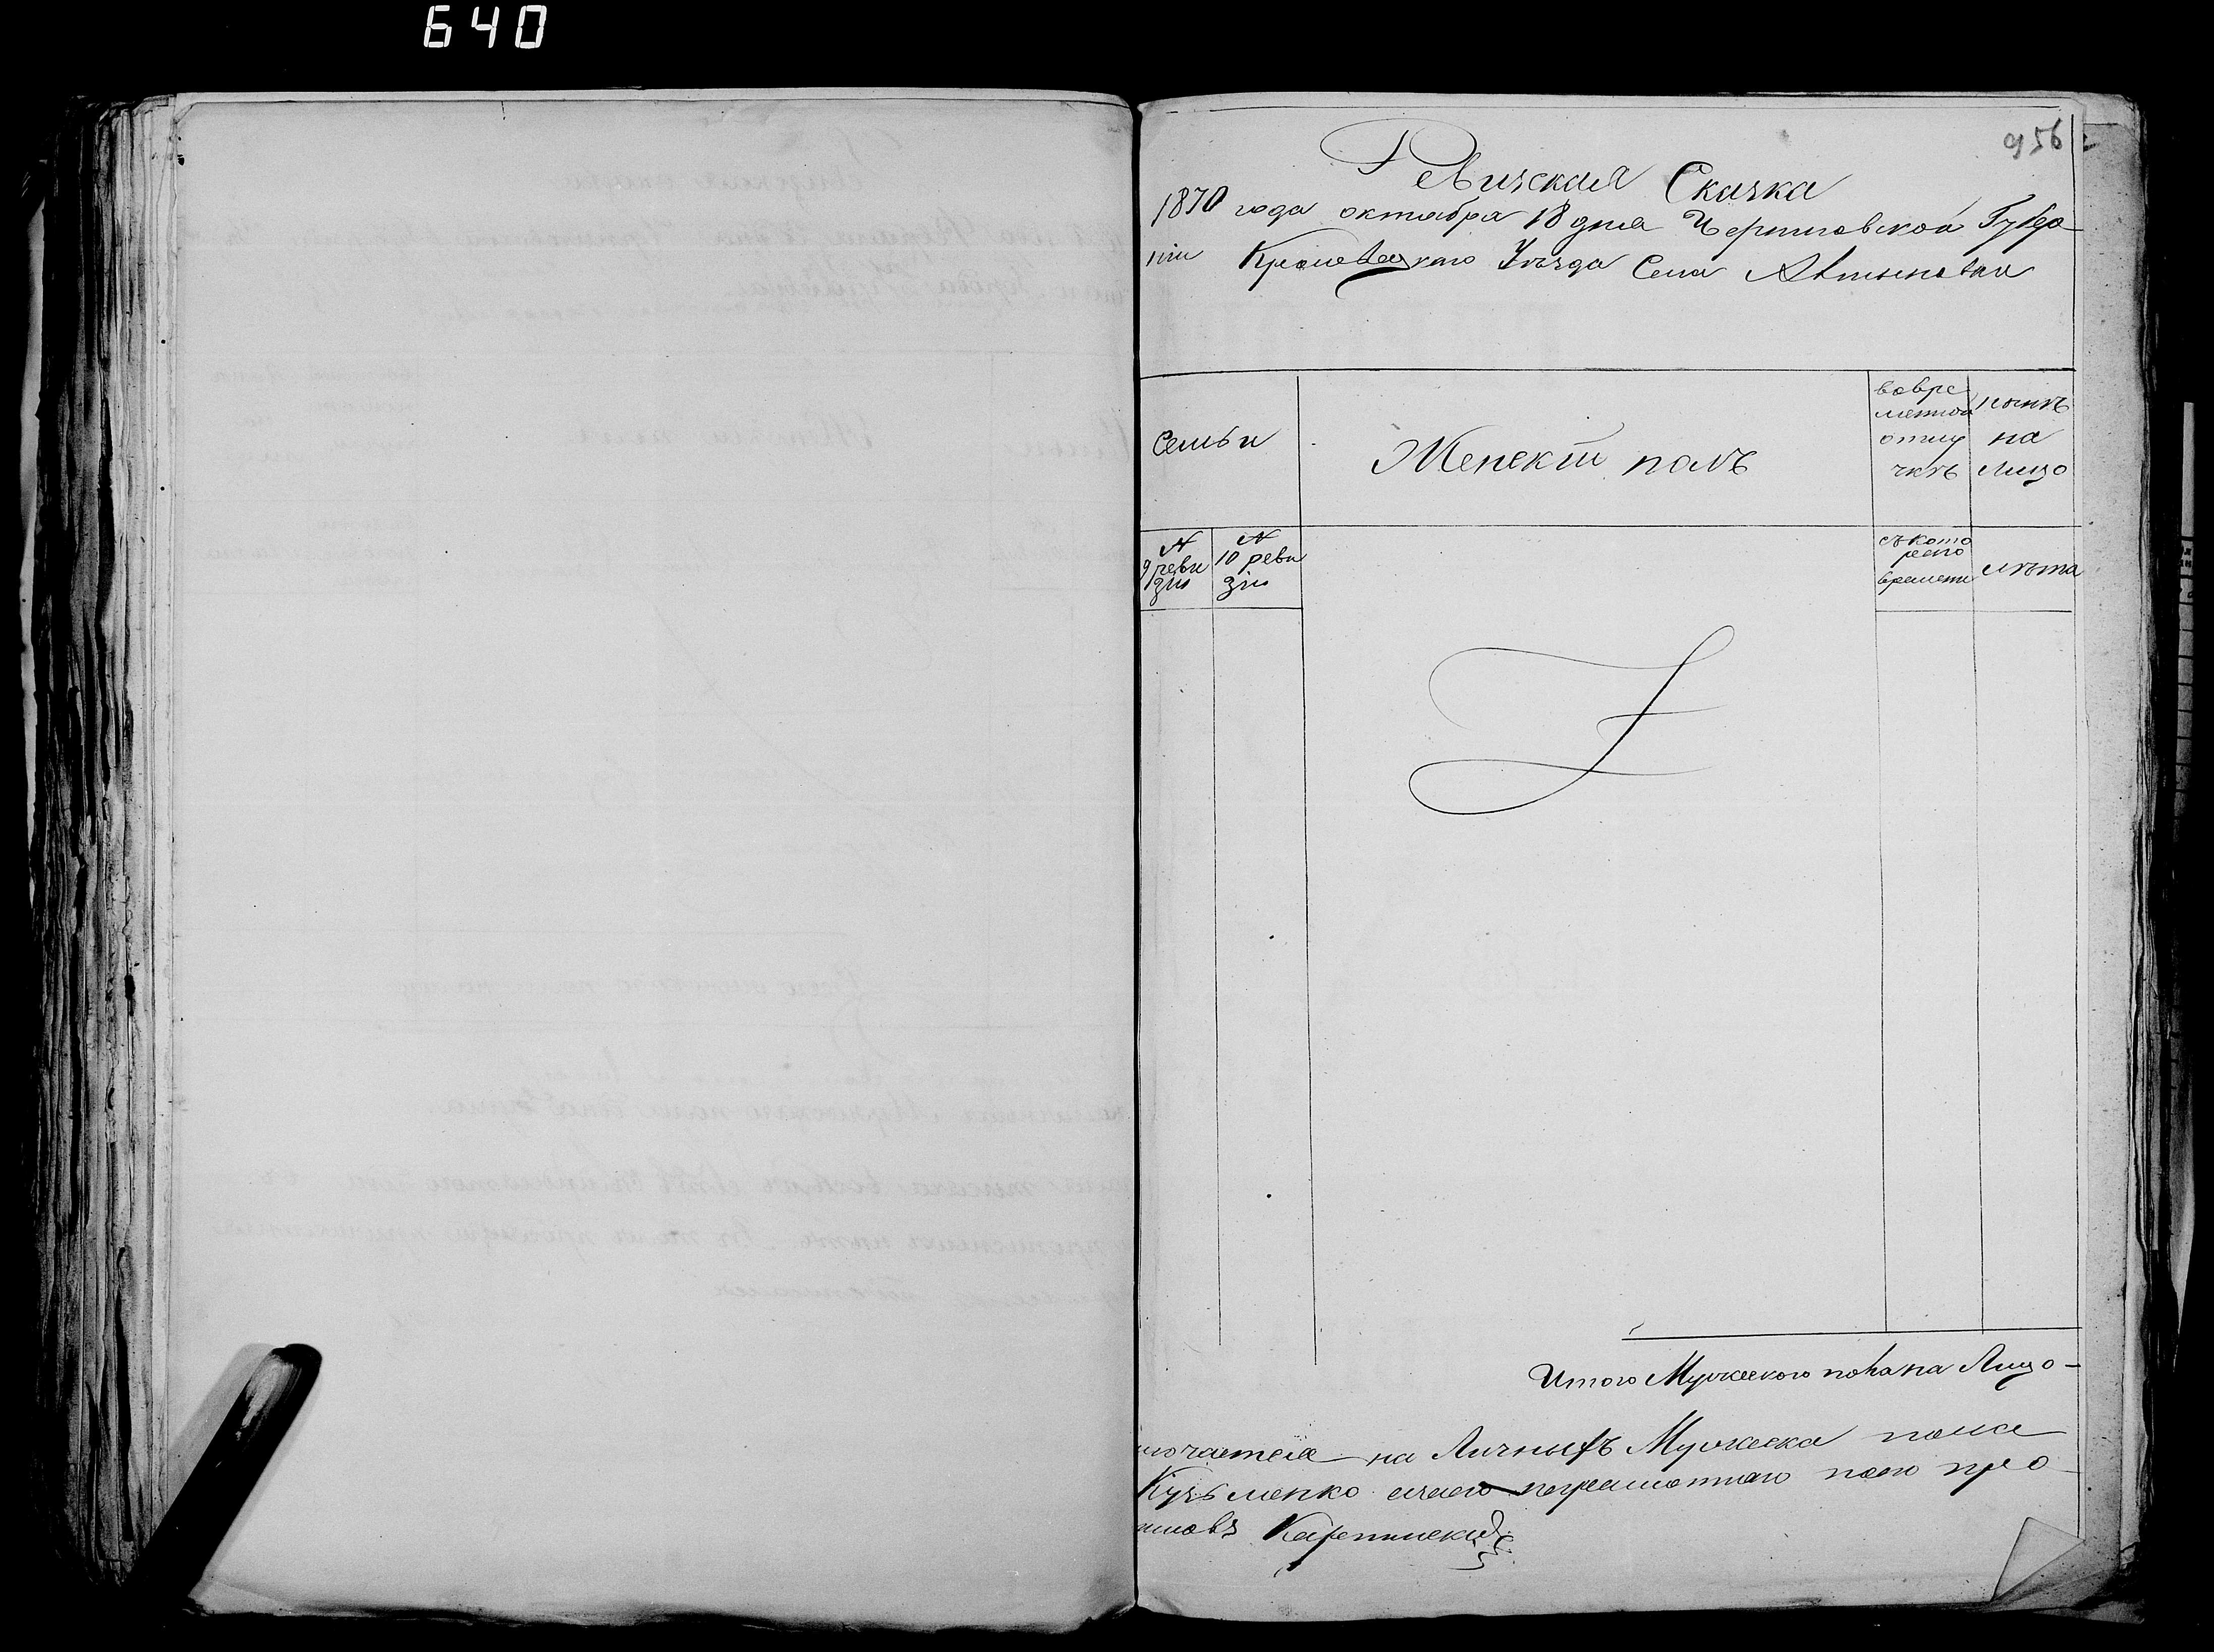 640
956
Ревизская Сказка
1870 года октября 18 дня Черниговской Губер
ніи Кролевецкаго Уѣзда Села Алтыновки
Семьи
Женскій полъ
вовре
менной
отлу
чкѣ
нынѣ
на
лицо
№
9 реви
зіи
№
10 реви
зіи
съ кото
раго
времени
лѣта
Итого Мужескаго пола на Лицо
на Личныхъ Мужеска пола
Кузьменко неграмотнаго его про